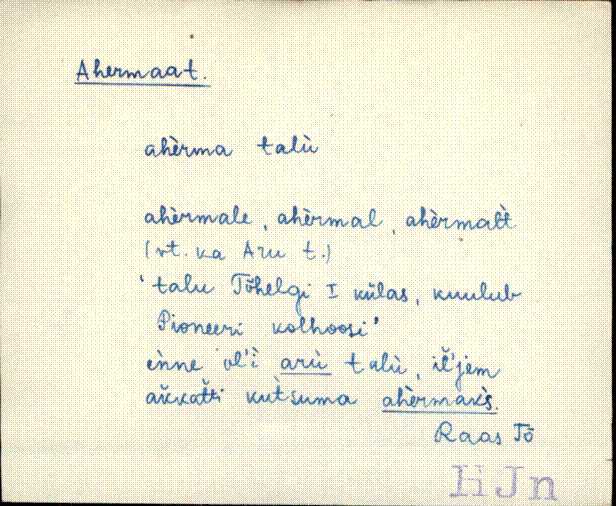 Ahermaat.
ahèrma talù
ahèrmale, ahèrmal, ahèrmatt̀
(vt. ka Aru t.)
'talu Tõhelgi I külas, kuulub
Pioneeri kolhoosi'
ènne ol'ì arù talù, il'jem
akkatti kut̀suma ahèrmaks̀.
Raas Tõ
HJn